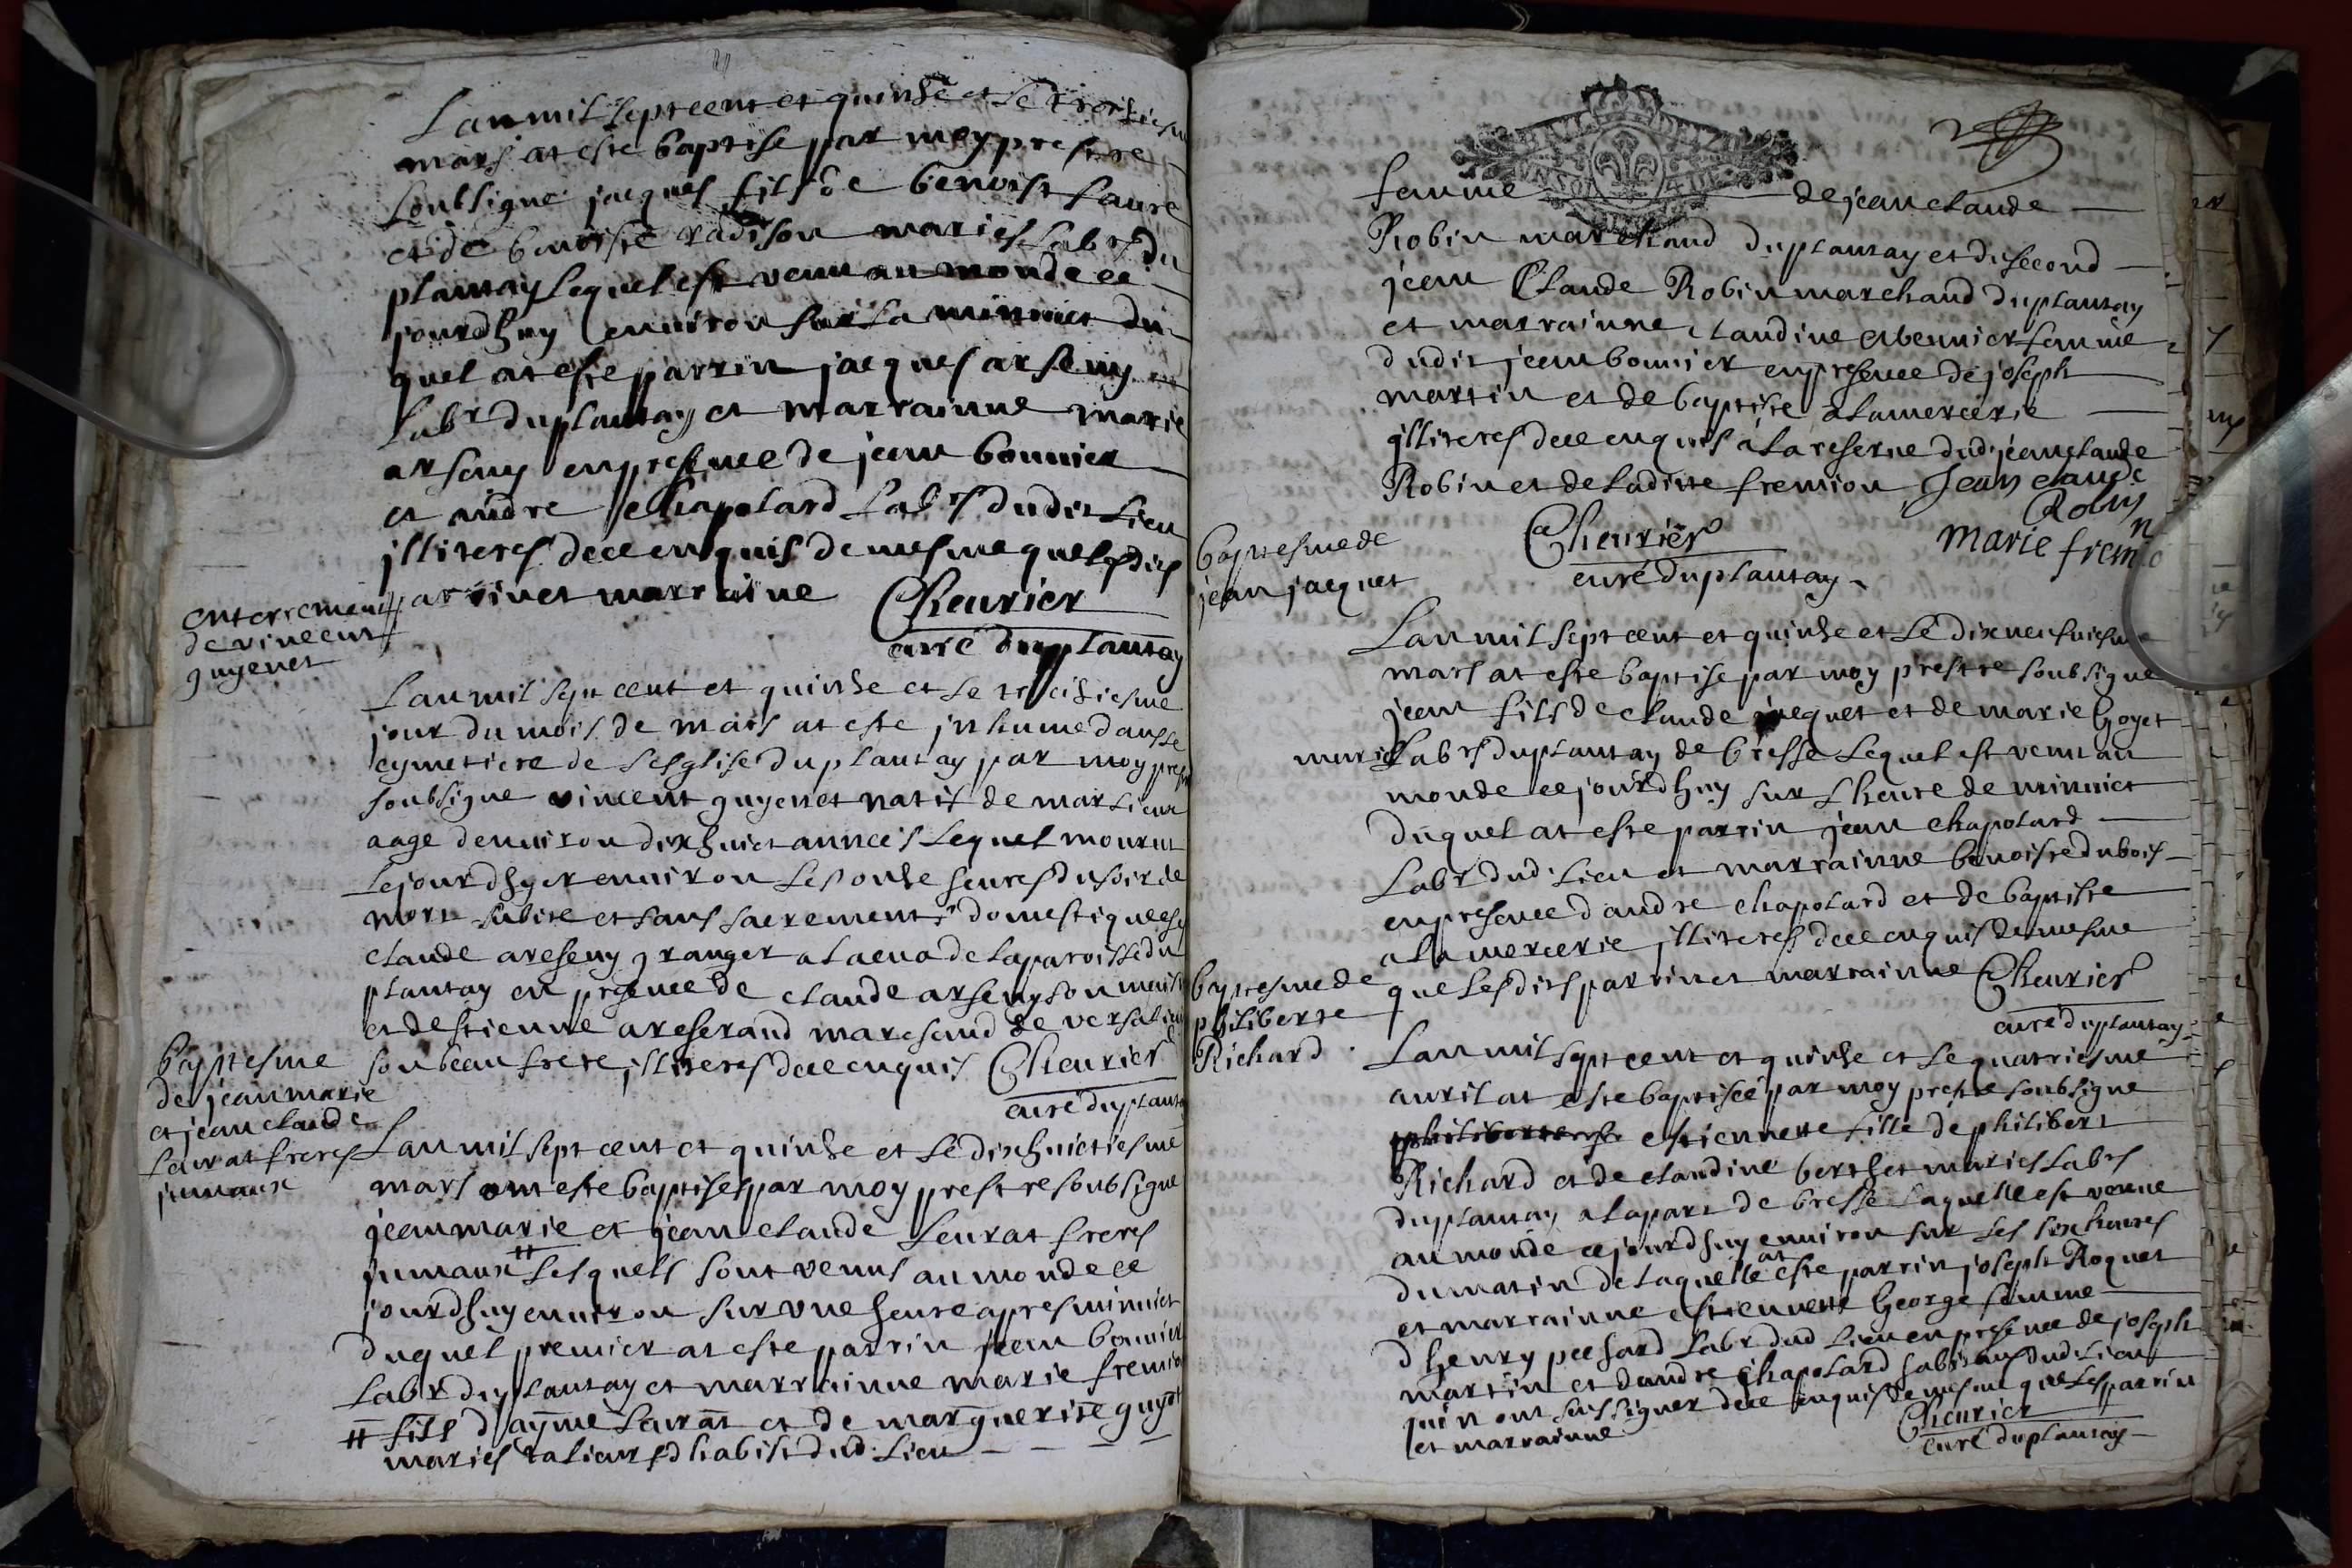 Lan mil sept cent et quinse et le troisiesme
mars at este baptise par moy prestre
soubsigne jacques fils de benoist faure
et de benoiste radison maries labrs du
plantay lequel est venu au monde ce
jourdhuy environ sur la minuict du
quel at este parrin jacques arseny
labr du plantay et marrainne marie
arseny en presence de jean bonnier
et andre chapolard labrs dudit lieu
jlliteres de ce enquis de mesme que lesdits
parrin et marraine Cheurier
curé du plantay
enterrement
de vincent
guyenet
Lan mil sept cent et quinse et le treisiesme
jour du mois de mars at este jnhume dans le
cymetiere de lesglise du plantay par moy prestre
soubsigne vincent guyenet natif de marlieu
aage denuiron dixhuict annees lequel mourut
le jourdhyer enuiron les onse heures du soir de
mort subite et sans sacrements domestique
claude areseny granger a la de la paroisse du
plantay en presence de claude arseny son maistre
et destienne areserand maresand de versalieu
son beau frere jlliteres de ce enquis Cheurier
curé du plantay
baptesme
de jean marie
et jean claude
leurat freres
jumaux
Lan mil sept cent et quinse et le dixhuictiesme
mars ont este baptises par moy prestre soubsigne
jean marie et jean claude leurat freres
jumaux # lesquels sont venus au monde ce
jourdhuy enuiron sur une heure apres minuict
duquel premier at este parrin jean bonnier
labr du plantay et marrainne marie fremion
# fils dayme leurat et de marguerite guyot
maries talieurs dhabist dud. lieu
femme de jean claude
Robin marchand du plantay et du second
jean Claude Robin marchand du plantay
et marrainne claudine femme
dudit jean bonnier en presence de joseph
martin et de baptiste alamercerie
jlliteres de ce enquis a la reserue dud. jean claude
Robin et de laditte fremion Jean claude
Robin
Cheurier marie fremion
curé du plantay
baptesme de
jean jacquet
Lan mil sept cent et quinse et le dixneufuiesme
mars at este baptise par moy prestre soubsigne
jean fils de claude jacquet et de marie goyet
maries labrs du plantay de bresse lequel est venu au
monde ce jourdhuy sur lheure de minuict
duquel at este parrin jean chapolard
labr dud. lieu et marrainne benoiste dubois
en presence dandre chapolard et de baptiste
alamercerie jlliteres de ce enquis de mesme
que lesdits parrin et marrainne Cheurier
curé du plantay
baptesme de
philiberte
Richard
Lan mil sept cent et quinse et le quatriesme
auril at este baptisee par moy prestre soubsigne
estiennette fille de philibert
Richard et de claudine berthet maries labrs
du plantay a la part de bresse laquelle est venue
au monde ce jourdhuy enuiron sur les six heures
du matin de laquelle at este parrin joseph Roquet
et marrainne estiennette george femme
dhenry pechard labr dud lieu en presence de joseph
martin et dandre chapolard habitans dud. lieu
qui nont seu signer de ce enquis de mesme que les parrin
et marrainne Cheurier
curé du plantay